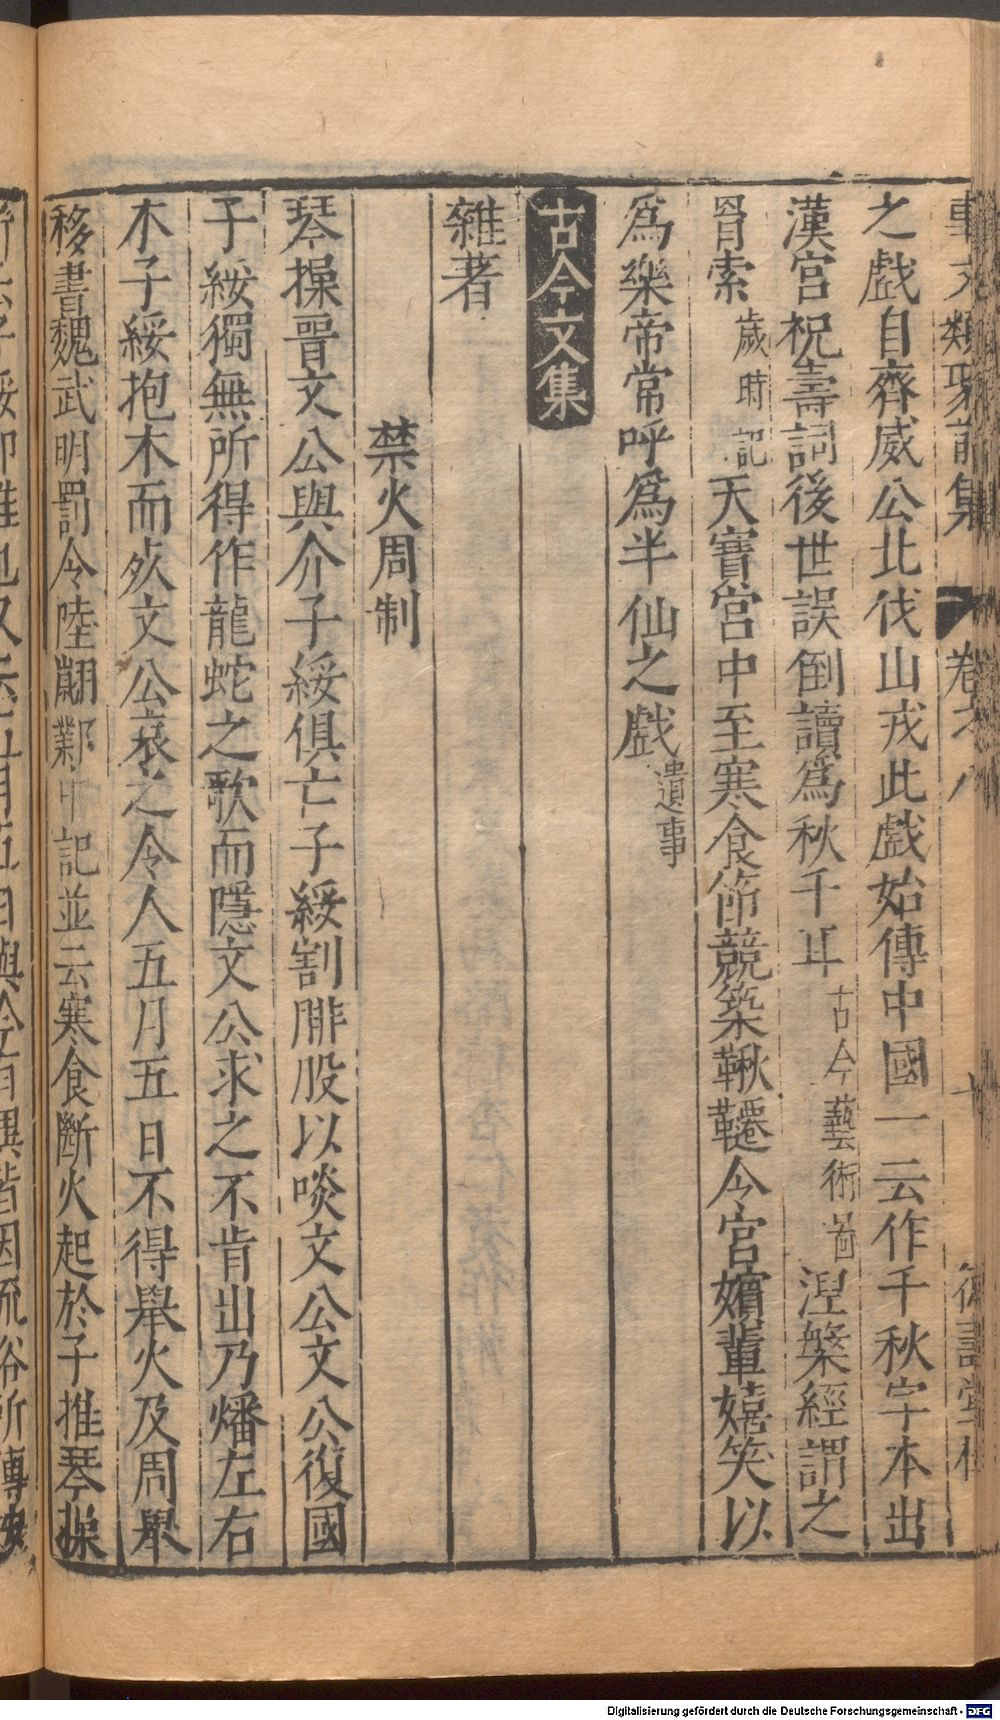 事文類聚前集 卷之八 十 德壽堂梓
之戲自齊威公北伐山戎此戲始傳中國一云作千秋字本出
漢宮祝壽詞後世誤倒讀爲秋千耳古今藝術啚涅槃經謂之
罥索歲時記天寶宮中至寒食節競築鞦韆今宮嬪輩嬉笑以
爲樂帝常呼爲半仙之戲遺事
古今文集
雜著
禁火周制
琴操晉文公與介子綏俱亡子綏割腓股以啖文公文公復國
子綏獨無所得作龍蛇之歌而隱文公求之不肯出乃燔左右
木子綏抱木而死文公哀之令人五月五日不得舉火及周舉
移書魏武明罰令陸翽鄴中記並云寒食斷火起於子推琴操
所云子綏卽推也又云五月五日與今有異皆因流俗所傳按
Digitalisierung gefördert durch die Deutsche Forschungsgemeinschaft - DFG